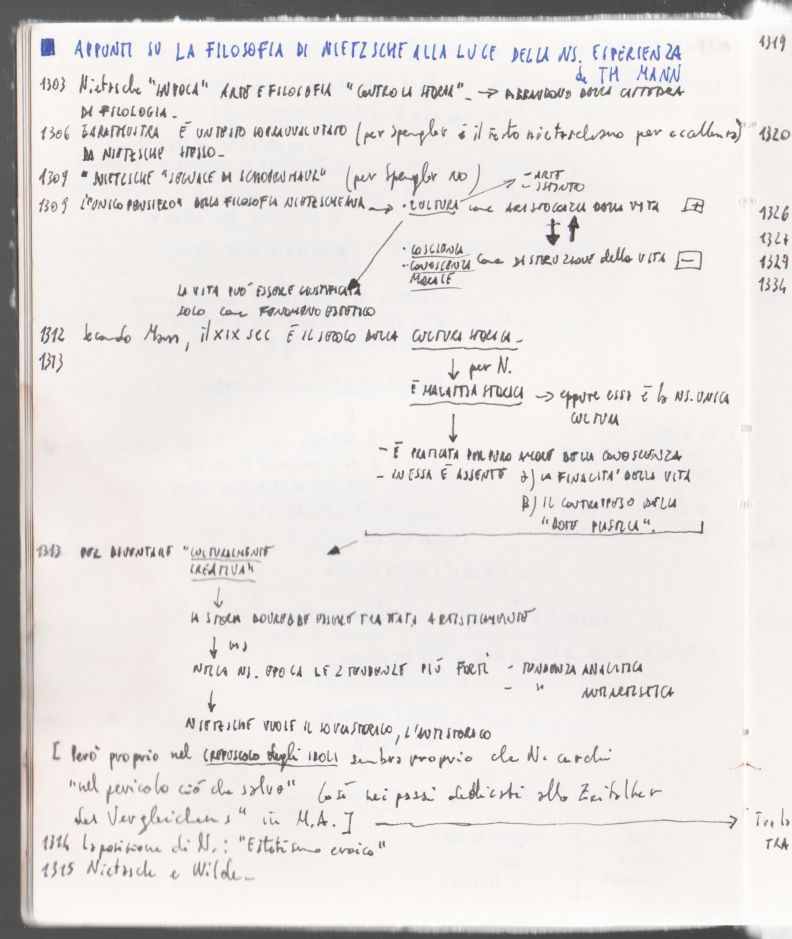 APPUNTI SU LA FILOSOFIA DI NIETZSCHE ALLA LUCE DELLA NS. ESPERIENZA
de TH MANN
1303 Nietzsche "INVOCA" ARTE E FILOSOFIA "CONTRO LA STORIA" → ABBANDONO DELLA CATTEDRA
DI FILOLOGIA.
1306 ZARATHUSTRA È UN TESTO SOPRAVVALUTATO (per Spengler è il testo nietzscheano per eccellenza)
DA NIETZSCHE STESSO.
1309 "NIETZSCHE "SEGUACE DI SCHOPENHAUER" (per Spengler NO)
- ARTE
- ISTINTO
1309 L'"UNICO PENSIERO" DELLA FILOSOFIA NIETZSCHEANA → • CULTURA come ARISTOCRAZIA DELLA VITA +
• COSCIENZA
• CONOSCENZA come DISTRUZIONE della VITA -
MORALE
LA VITA PUÒ ESSERE GIUSTIFICATA
SOLO come FENOMENO ESTETICO
1312 Secondo Mann, il XIX SEC È IL SECOLO DELLA CULTURA STORICA.
1313
↓ per N.
È MALATTIA STORICA → eppure essa è la NS. UNICA
CULTURA
- È PRATICATA PER PURO AMORE DELLA CONOSCENZA
- IN ESSA È ASSENTE α) LA FINALITÀ DELLA VITA
β) IL CONTRAPPESO DELLA
"DOTE PLASTICA".
1313 PER DIVENTARE "CULTURALMENTE
CREATIVA"
LA STORIA DOVREBBE ESSERE TRATTATA ARTISTICAMENTE
↓ ma
NELLA NS. EPOCA LE 2 TENDENZE PIÙ FORTI - TENDENZA ANALITICA
- " ANTIARTISTICA
NIETZSCHE VUOLE IL SOVRASTORICO, L'ANTISTORICO
[ Però proprio nel CREPUSCOLO degli IDOLI sembra proprio che N. cerchi
"nel pericolo ciò che salva" Così nei passi dedicati allo Zeitalter
der Vergleichung" in M.A. ]
1314 La posizione di N.: "Estetismo eroico"
1315 Nietzsche e Wilde.
1319
1320
1326
1327
1329
1334
TRA